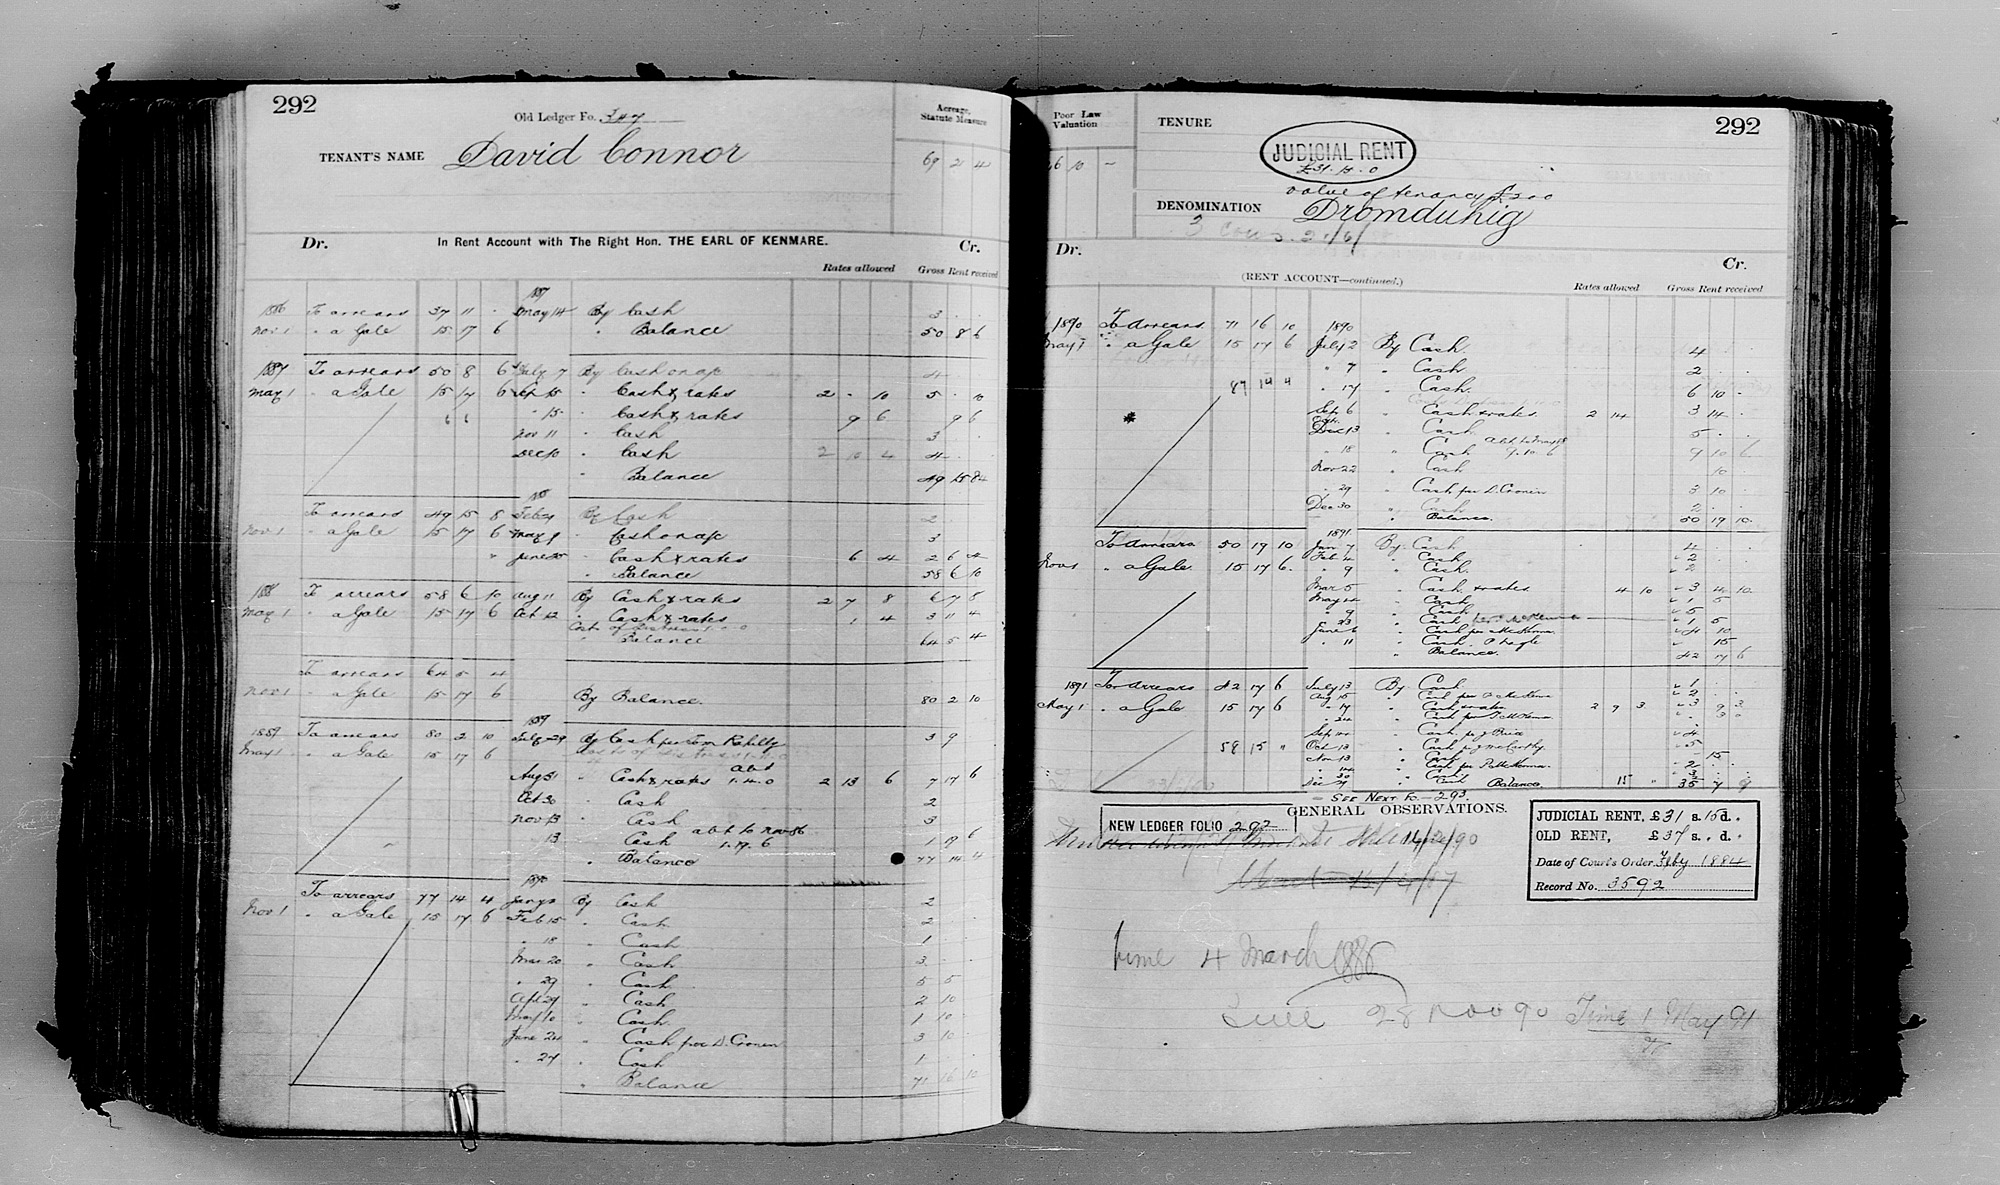 292
Old Ledger Fo. 347
Acreage, Statute Measure
TENANT'S NAME David Connor
69 2 4
Dr. In Rent Account with The Right Hon. THE EARL OF KENMARE. Cr.
Rates allowed Gross Rent received
1887
1886 To arrears 37 11 - May 14 By Cash 3 . .
Nov 1 " a Gale 15 17 6 " Balance 50 8 6
1887 To arrears 50 8 6 July 7 By Cash on a/c 4
May 1 " a Gale 15 17 6 Sep 15 " Cash & rates 2 - 10 5 . 10
" 15 " Cash & rates 9 6 9 6
Nov 11 " Cash 3 . .
Dec 10 " Cash 2 10 4 4
Balance 49 15 8
To arrears 49 15 8 Feb 21 By Cash 2
Nov 1 " a Gale 15 17 6 May 9 " Cash on a/c 3
" June 25 " Cash & rates 6 4 2 6 4
" Balance 58 6 10
1888 To arrears 58 6 10 Aug 11 By Cash & rates 2 7 8 6 7 8
May 1 " a Gale 15 17 6 Oct 12 " Cash & rates 1 4 3 11 4
Costs of Distress 1-0-0
Balance 64 5 4
To arrears 64 5 4
Nov 1 " a Gale 15 17 6 By Balance 80 2 10
1889
1889 To arrears 80 2 10 July 29 By Cash per Tom 3 9
May 1 " a Gale 15 17 6
abt
Aug 31 " Cash & rates 1.4.0 2 13 6 7 17 6
Oct 30 " Cash 2
Nov 13 " Cash 3
" 13 " Cash abt to Nov 86 1.19.6 1 19 6
" Balance 77 14 4
1890
To arrears 77 14 4 Jany 2 By Cash 2
Nov 1 " a Gale 15 17 6 Feb 15 " Cash 2
" 18 " Cash 1
Mar 20 " Cash 3
" 29 " Cash 5 5
Apl 29 " Cash 2 10
May 10 " Cash 1 10
June 24 " Cash per D. Cronin 3 10
" 27 " Cash 1
" Balance 71 16 10
292
Poor Law Valuation
TENURE
JUDICIAL RENT
£31.15.0
16 10 -
value of tenancy £200
DENOMINATION Dromduhig
Dr. Cr.
(RENT ACCOUNT—continued.)
Rates allowed Gross Rent received
1890 To Arrears 71 16 10 1890
May 1 " a Gale 15 17 6 July 2 By Cash 4 . .
" 7 " Cash 2 . .
87 14 4 " 17 " Cash 6 10 -
Sep 6 " Cash & rates 2 14 3 14 -
Dec 13 " Cash 5 . .
" 18 " Cash abt to May 88 9.10.6 9 10 6
Nov 22 " Cash 10
" 29 " Cash per D. Cronin 3 10
Dec 30 " Cash 2
" Balance 50 19 10
1891
To Arrears 50 19 10 Jan 7 By Cash 4
Nov 1 " a Gale 15 17 6 Feb 4 " Cash 2
" 9 " Cash 2
Mar 5 " Cash & rates 4 10 3 4 10
May 14 " Cash 1 5
" 9 " Cash 5
" 23 " Cash 1 5
June 6 " Cash per McKenna 4 10
" 11 " Cash P. Nagle 15
" Balance 42 17 6
1891 To Arrears 42 17 6 July 13 By Cash 1
May 1 " a Gale 15 17 6 Aug 15 " Cash per McKenna 2
" 17 " Cash & rates 2 9 3 3 9 3
" 24 " Cash per McKenna 3
58 15 " Sep 22 " Cash per J Price 4
Oct 13 " Cash per J McCarthy 5
Nov 13 " Cash 15
Cash per McKenna 2
" 30 " Cash 3
Dec Cash Balance 15 " 35 7 9
- SEE NEXT FO - 293
GENERAL OBSERVATIONS.
NEW LEDGER FOLIO 292
JUDICIAL RENT, £31 s. 15 d.
OLD RENT, £37 s. . d.
Date of Court's Order, Feby 1884
Record No. 3592
time 4 March 1886
28 Nov 90 Time 1 May 91